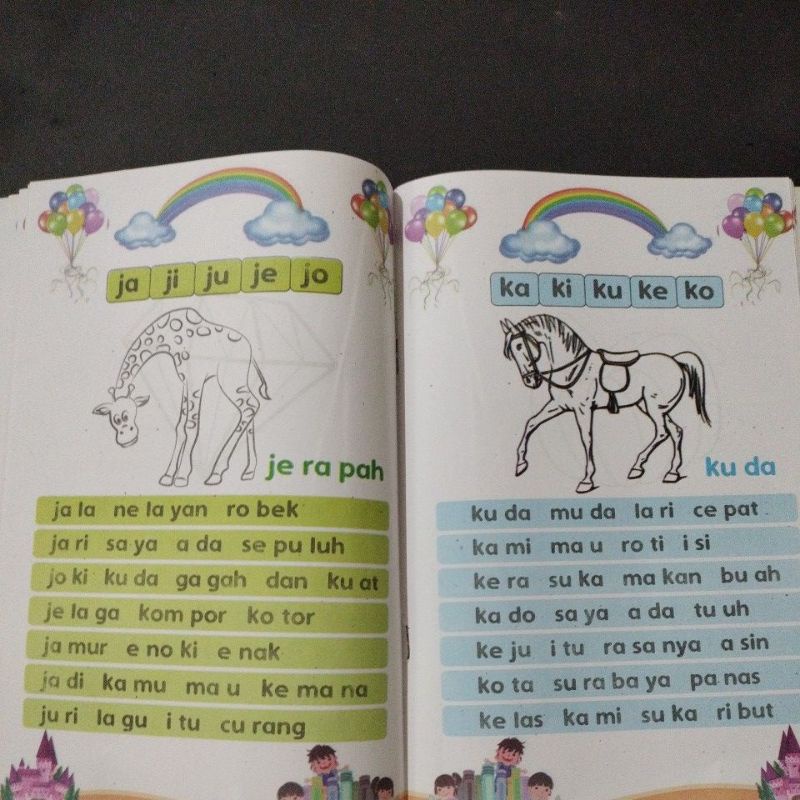 ja ji ju je jo
je ra pah
ja la ne la yan ro bek
ja ri sa ya a da se pu luh
jo ki ku da ga gah dan ku at
je la ga kom por ko tor
ja mur e no ki e nak
ja di ka mu ma u ke ma na
ju ri la gu i tu cu rang
ka ki ku ke ko
ku da
ku da mu da la ri ce pat
ka mi ma u ro ti i si
ke ra su ka ma kan bu ah
ka do sa ya a da tu uh
ke ju i tu ra sa nya a sin
ko ta su ra ba ya pa nas
ke las ka mi su ka ri but